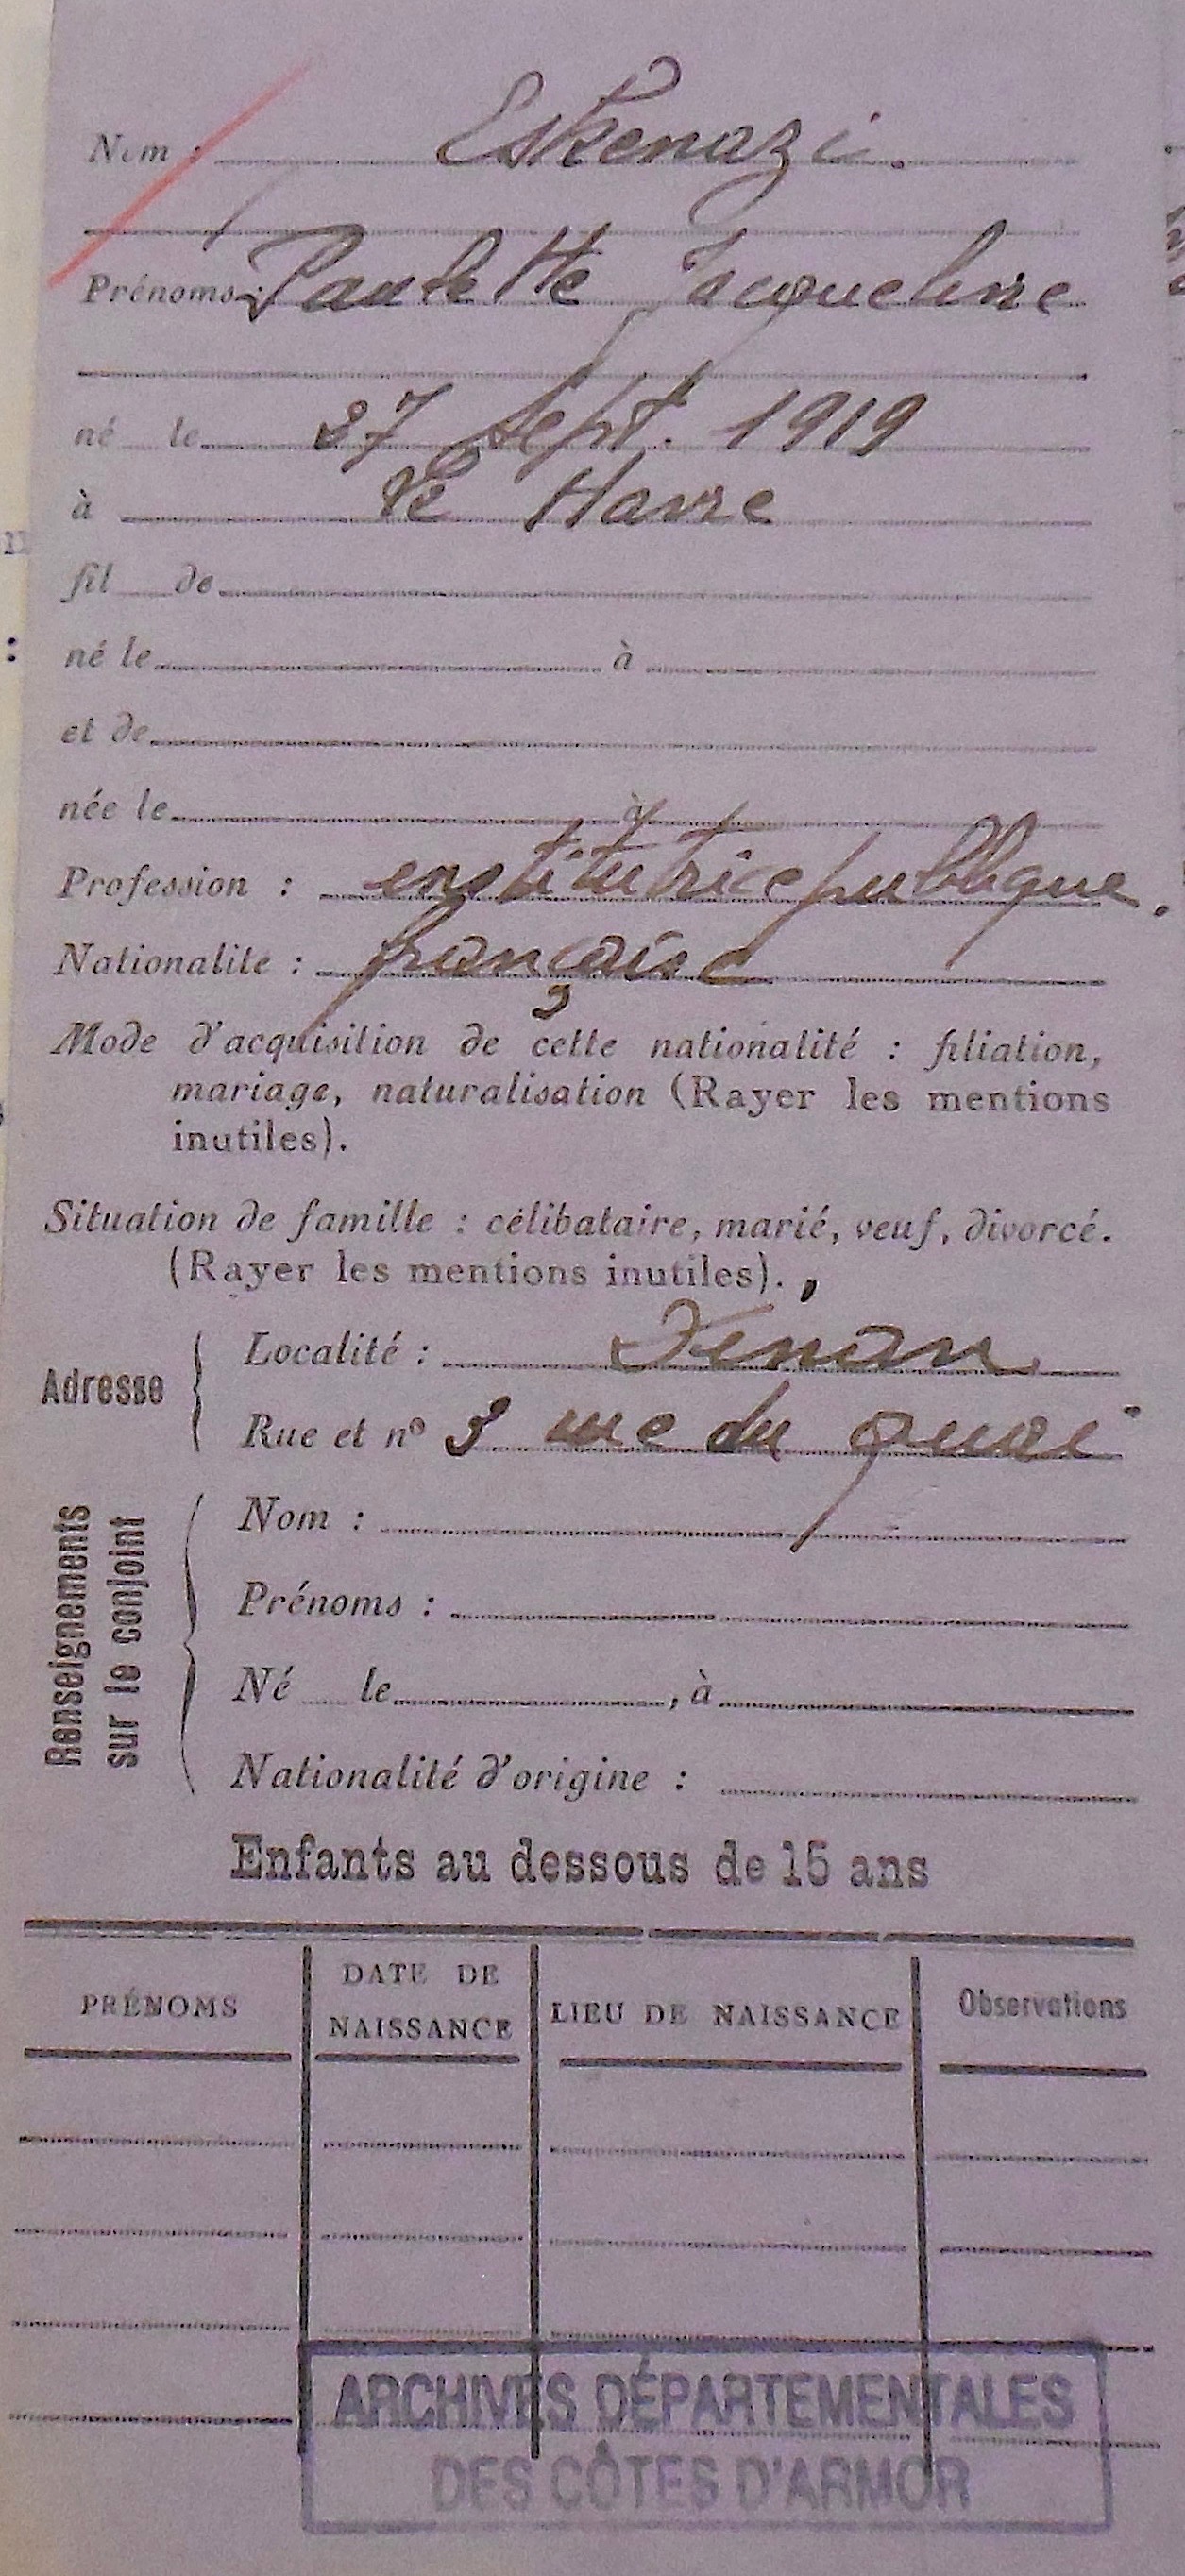 Nom : Eskenazi.
Prénoms : Paulette Jacqueline
né le 27 Sept. 1919
à Le Havre
fil de
né le à
et de
née le à
Profession : institutrice publique.
Nationalité : française
Mode d'acquisition de cette nationalité : filiation,
mariage, naturalisation (Rayer les mentions
inutiles).
Situation de famille : célibataire, marié, veuf, divorcé.
(Rayer les mentions inutiles).
Adresse
Localité : Dinan
Rue et nº 3 rue du quai
Renseignements
sur le conjoint
Nom :
Prénoms :
Né le , à
Nationalité d'origine :
Enfants au dessous de 15 ans
PRÉNOMS DATE DE NAISSANCE LIEU DE NAISSANCE Observations
ARCHIVES DÉPARTEMENTALES
DES CÔTES D'ARMOR